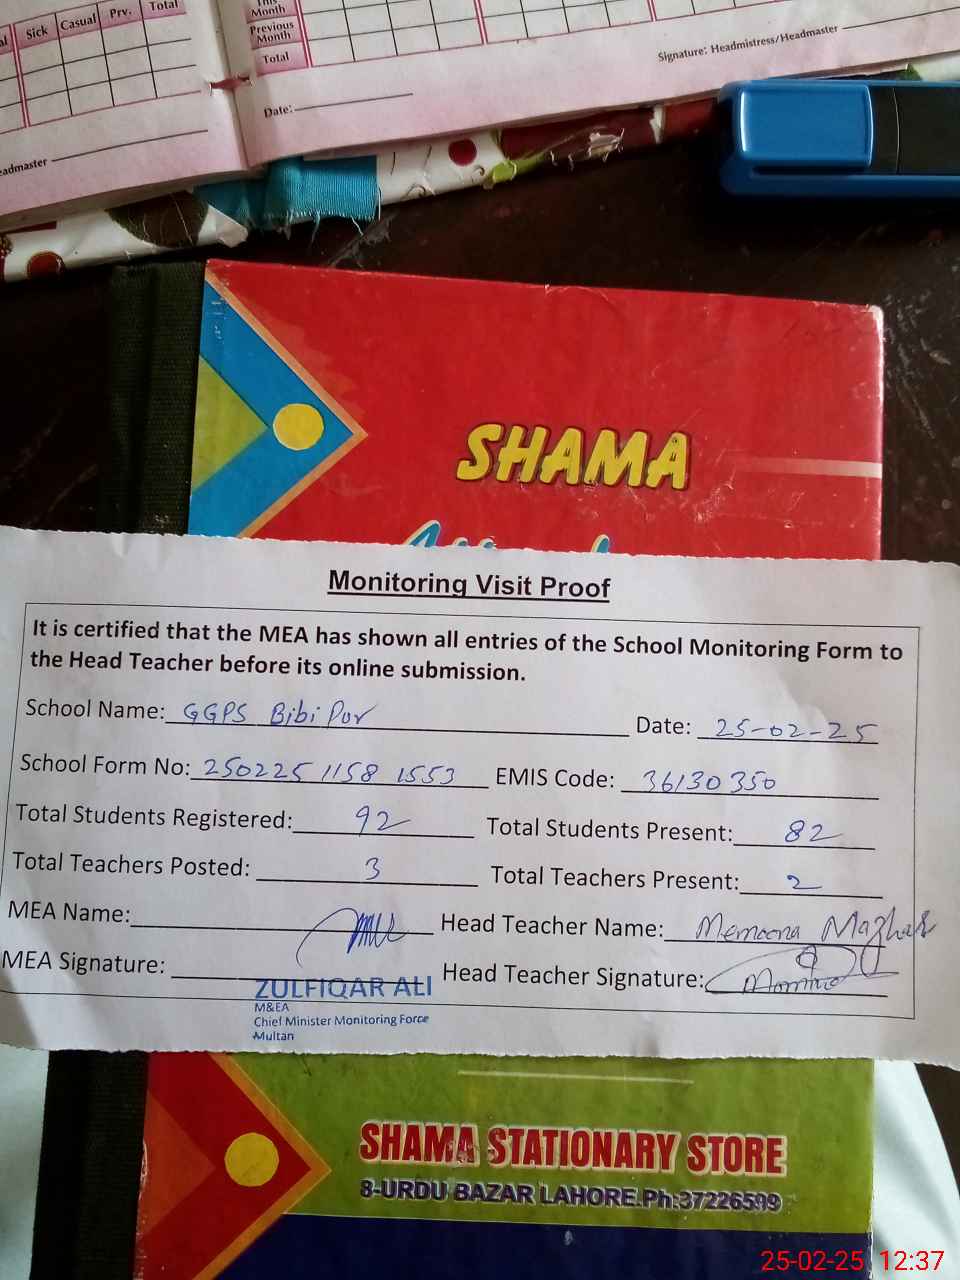 Sick Casual Prv. Total
This Month
Previous Month
Total
Signature: Headmistress/Headmaster
Date:
SHAMA
Monitoring Visit Proof
It is certified that the MEA has shown all entries of the School Monitoring Form to
the Head Teacher before its online submission.
School Name: GGPS Bibi Pur Date: 25-02-25
School Form No: 250225 1158 1553 EMIS Code: 36130350
Total Students Registered: 92 Total Students Present: 82
Total Teachers Posted: 3 Total Teachers Present: 2
MEA Name: Head Teacher Name: Memoona Mazhar
MEA Signature: Head Teacher Signature:
ZULFIQAR ALI
M&EA
Chief Minister Monitoring Force
Multan
SHAMA STATIONARY STORE
8-URDU BAZAR LAHORE.Ph:37226599
25-02-25 12:37